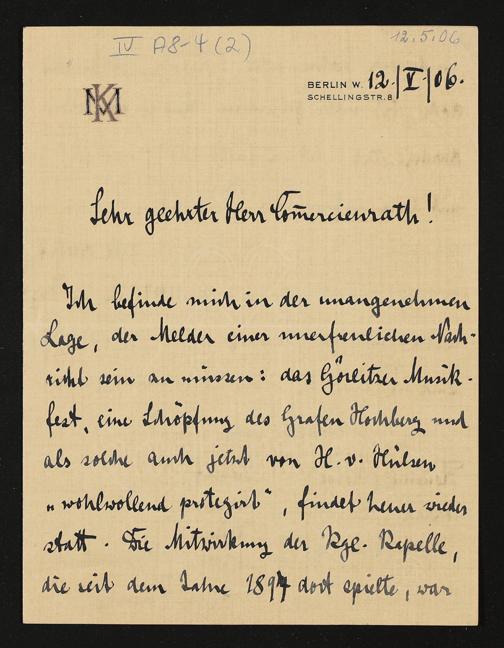 IV A8-4 (2)
12.5.06
BERLIN W. 12./V./06.
SCHELLINGSTR. 8
KM
Sehr geehrter Herr Com̅ercienrath!
Ich befinde mich in der unangenehmen
Lage, der Melder einer unerfreulichen Nach-
richt sein zu müssen: das Görlitzer Musik-
fest, eine Schöpfung des Grafen Hochberg und
als solche auch jetzt von H. v. Hülsen
„wohlwollend protegirt", findet heuer wieder
statt. Die Mitwirkung der Kgl. Kapelle,
die seit dem Jahre 1894 dort spielte, war